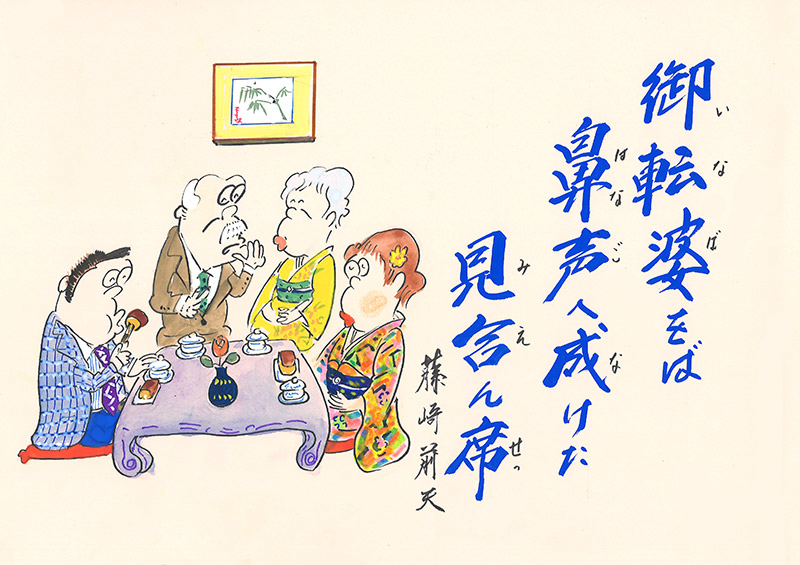 御転婆をば
いなば
鼻声へ成けた
はなごな
見合ん席
みえせっ
藤崎